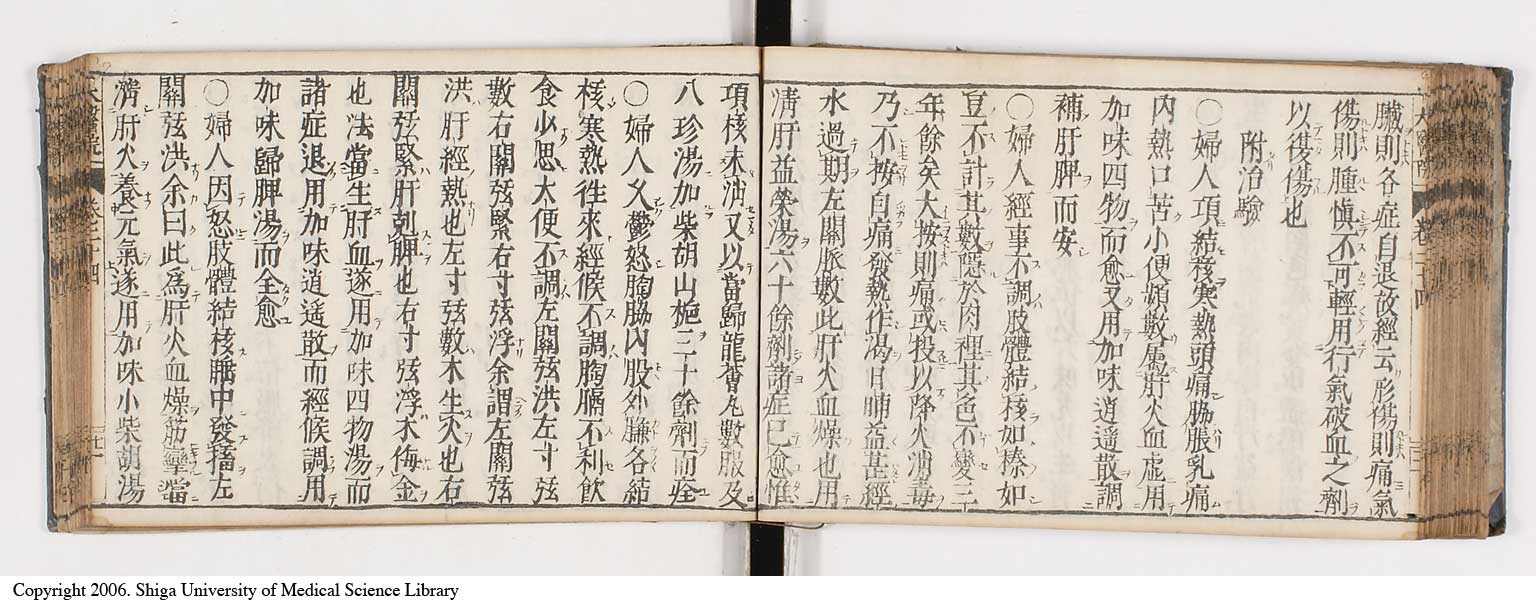 臟則各症自退故經云形傷則痛氣
傷則腫愼不可輕用行氣破血之劑
以復傷也
附治驗
○婦人項結核寒熱頭痛脇脹乳痛
内熱口苦小便頻數屬肝火血虚用
加味四物而愈又用加味逍遥散調
補肝脾而安
○婦人經事不調肢體結核如榛如
豆不計其數隱於肉裡其色不變三
年餘矣大按則痛或投以降火消毒
乃不按自痛發熱作渇日晡益甚經
水過期左關脈數此肝火血燥也用
淸肝益榮湯六十餘劑諸症已愈惟
項核未消又以當歸龍薈丸數服及
八珍湯加柴胡山梔三十餘劑而痊
○婦人久鬱怒胸脇内股外臁各結
核寒熱徃來經候不調胸膈不利飲
食少思大便不調左關弦洪左寸弦
數右關弦緊右寸弦浮余謂左關弦
洪肝經熱也左寸弦數木生火也右
關弦緊肝剋脾也右寸弦浮木侮金
也法當生肝血遂用加味四物湯而
諸症退用加味逍遥散而經候調用
加味歸脾湯而全愈
○婦人因怒肢體結核隔中發搐左
關弦洪余曰此爲肝火血燥筋攣當
濟肝火養元氣遂用加味小柴胡湯
Copyright 2006. Shiga University of Medical Science Library